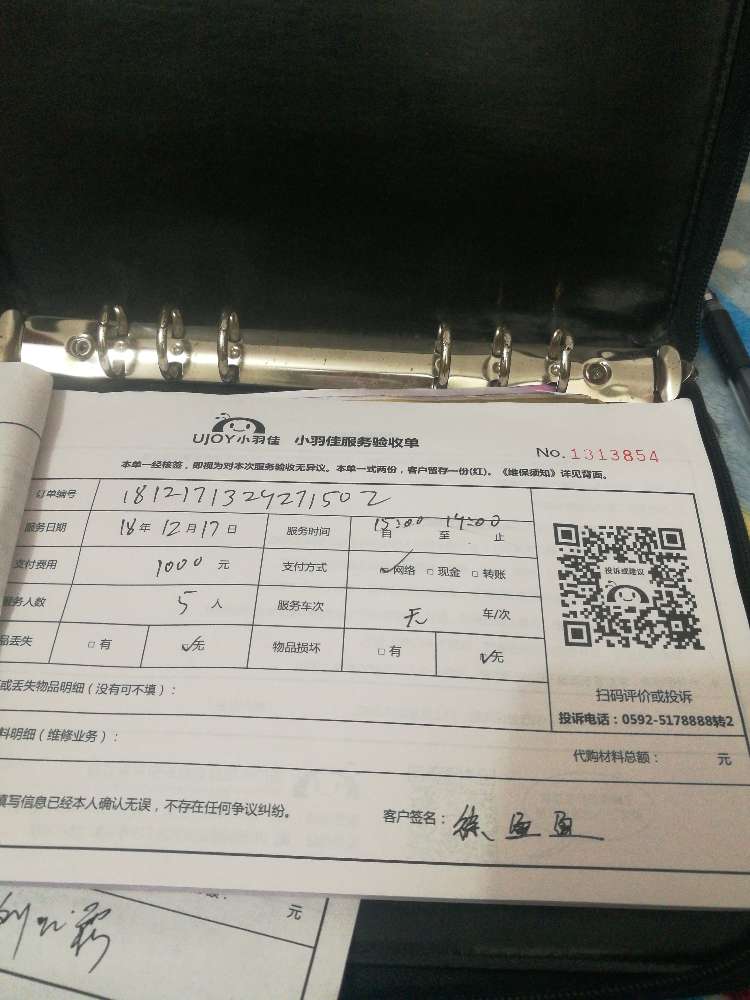 UJOY小羽佳 小羽佳服务验收单
No.1313854
本单一经核签，即视为对本次服务验收无异议。本单一式两份，客户留存一份(红)。《维保须知》详见背面。
订单编号 1812171329271502
服务日期 18年12月17日 服务时间 自15:00至14:00止
支付费用 1000元 支付方式 网络 □现金 □转账
服务人数 5人 服务车次 无 车/次
品丢失 □有 ✓无 物品损坏 □有 ✓无
投诉或建议
扫码评价或投诉
投诉电话：0592-5178888转2
或丢失物品明细（没有可不填）：
料明细（维修业务）： 代购材料总额： 元
填写信息已经本人确认无误，不存在任何争议纠纷。 客户签名：徐盈盈
元